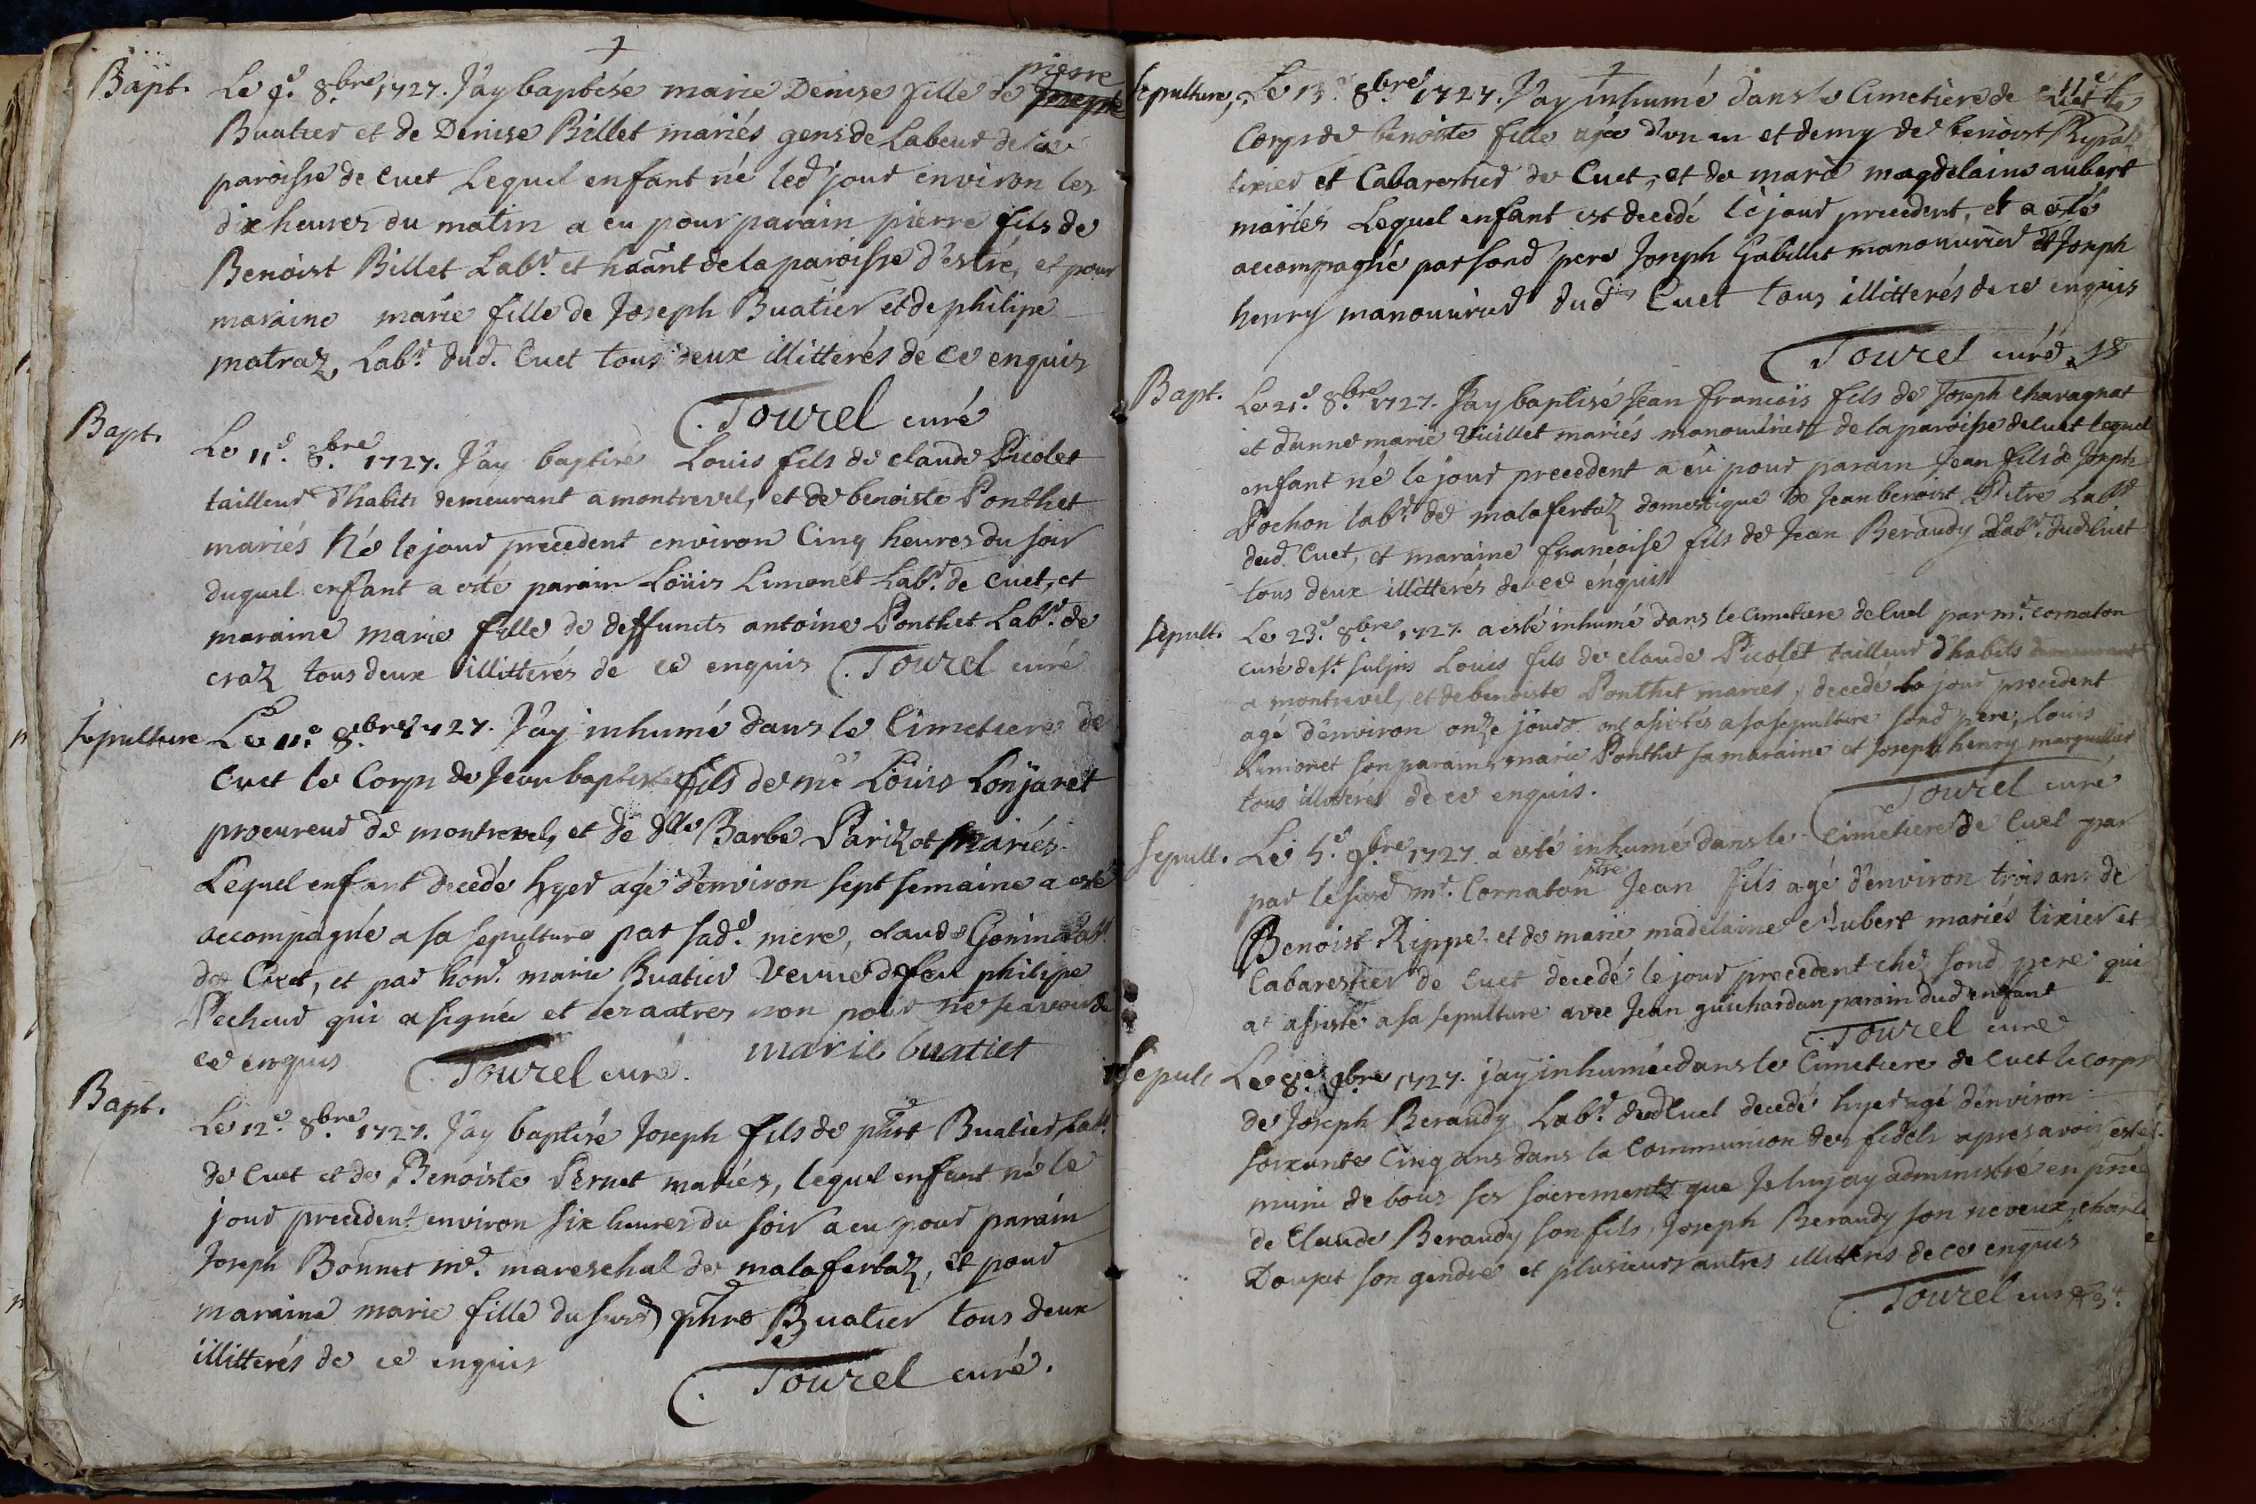 Bapt. Le 9e. 8.bre 1727. J'ay baptisé marie Denise fille de pierre
Buatier et de Denise Billet mariés gens de Labeur de la
paroisse de Cuet Lequel enfant né led jour environ les
dix heures du matin a eu pour parain pierre fils de
Benoist Billet Labr. et hãant de la paroisse d'estré, et pour
maraine marie fille de Joseph Buatier et de philipe
matraz, Labr. dud. Cuet tous deux illitterés de ce enquis
Tourel curé
Bapt. Le 11e. 8.bre 1727. J'ay baptisé Louis fils de claude Picolet
tailleur d'habits demeurant a montrevel, et de benoiste Ponthet
mariés Né le jour precedent environ Cinq heures du soir
duquel enfant a esté parain Loüis Limonet Labr. de Cuet, et
maraine marie fille de deffuncts antoine Ponthet Labr. de
craz tous deux illitterés de ce enquis Tourel curé
Sepulture Le 11e. 8.bre 1727. J'ay inhumé dans le Cimetiere de
Cuet le Corps de Jean baptiste fils de me Loüis Lonjaret
procureur de montrevel, et de dlle Barbe Parizot Mariés
Lequel enfant decedé hyer agé d'environ sept semaine a esté
accompagné a sa sepulture par sade. mere, claude Gonin Labr.
de Cuet, et par honr. marie Buatier Veuve de feu philipe
Pecheur qui a signée et les autres non pour ne scavoir de
ce enquis Tourel curé. marie buatier
Bapt. Le 12e. 8.bre 1727. J'ay baptisé Joseph fils de phrt Buatier Labr.
de Cuet et de Benoiste Pernet mariés, lequel enfant né le
jour precedent environ six heures du soir a eu pour parain
Joseph Bonnet me. mareschal de malafertaz, et pour
maraine marie fille du susd phrt Buatier tous deux
illitterés de ce enquis
Tourel curé.
11e
Sepulture, Le 13e 8.bre 1727. J'ay inhumé dans le Cimetiere de Cuet le
Corps de benoiste fille agée d'un an et demy de benoist
tixier et Cabarestier de Cuet, et de marie magdelaine aubert
mariés Lequel enfant est decedé le jour precedent, et a esté
accompagné par sond pere Joseph Gabillet manouvrier et Joseph
henry manouvrier dud Cuet tous illitterés de ce enquis
Tourel curé
Bapt. Le 21e. 8.bre 1727. J'ay baptisé Jean francois fils de Joseph Charagnat
et d'anne marie Vuillet mariés manouvriers de la paroisse de Cuet lequel
enfant né le jour precedent a eû pour parain Jean fils de Joseph
Pochon labr. de malafertaz domestique de Jean benoist Pitre Labr
dud. Cuet, et maraine francoise fils de Jean Beraudy Labr. dud Cuet
tous deux illitterés de ce enquis
Sepult. Le 23e. 8.bre 1727. a esté inhumé dans le Cimetiere de Cuet par mr. Cornaton
curé de st. sulpis Louis fils de claude Picolet tailleur d'habits demeurant
a montrevel, et de benoiste Ponthet mariés, decedé le jour precedent
agé d'environ onze jours ont assistés a sa sepulture sond pere, Louis
Limonet son parain, marie Ponthet sa maraine et Joseph henry marguillier
tous illitterés de ce enquis. Tourel curé
Sepult. Le 5e. 9.bre 1727 a esté inhumé dans le Cimetiere de Cuet par
par le susd mr. Cornaton ptre Jean fils agé d'environ trois ans de
Benoist Rippe et de marie madelaine Aubert mariés tixier et
Cabarestier de Cuet decedé le jour precedent ché sond pere qui
a assisté a sa sepulture avec Jean guichardan parain dud enfant
Tourel curé
Sepul. Le 8e. 9.bre 1727. j'ay inhumé dans le Cimetiere de Cuet le corps
de Joseph Beraudy Labr. dud Cuet decedé hyer agé d'environ
soixante Cinq ans dans la Communion des fidels apres avoir esté
muni de tous ses sacrements que Je luy ay administré en pnce
de Claude Beraudy son fils, Joseph Beraudy son neveux, charle
Doupet son gendre et plusieurs autres illitterés de ce enquis
Tourel curé